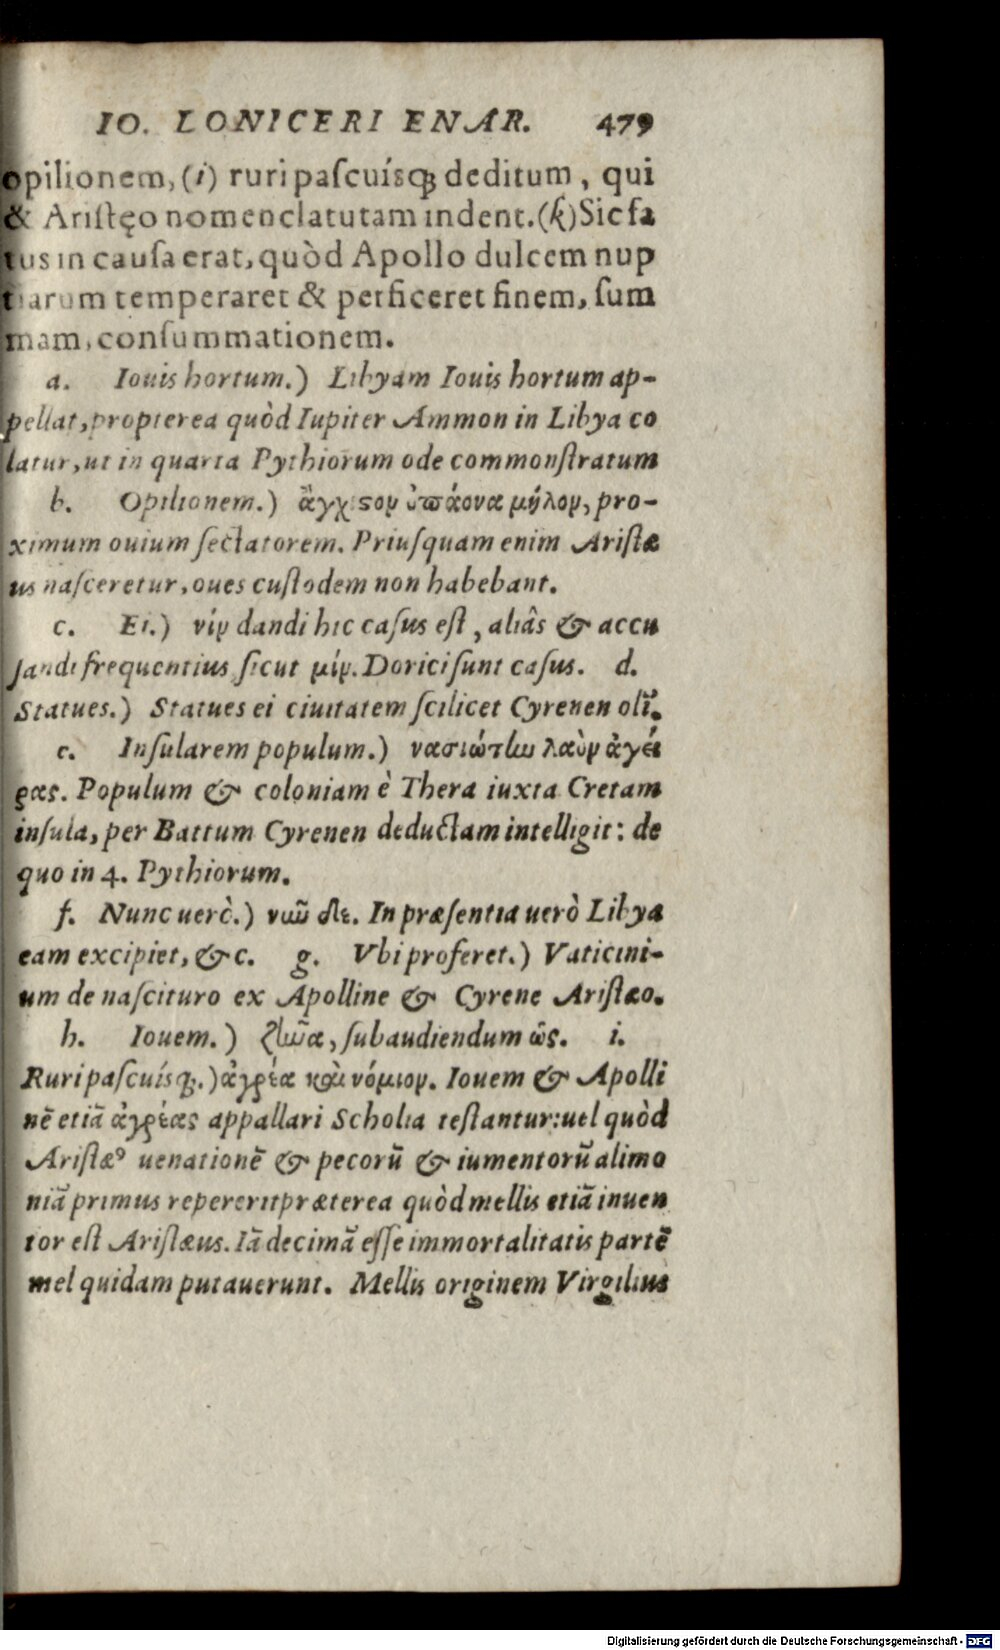 IO. LONICERI ENAR. 479
opilionem, (i) ruri paſcuísq́ꝫ deditum, qui
& Ariſtęo nomenclatutam indent. (k) Sic fa
tus in cauſa erat, quòd Apollo dulcem nup
tiarum temperaret & perficeret finem, ſum
mam, conſummationem.
a. Iouis hortum.) Libyam Iouis hortum ap-
pellat, propterea quòd Iupiter Ammon in Libya co
latur, ut in quarta Pythiorum ode commonſtratum
b. Opilionem.) ἄγχιϛον ὀπάονα μήλον, pro-
ximum ouium ſectatorem. Priuſquam enim Ariſtæ
us naſceretur, oues cuſtodem non habebant.
c. Ei.) νίν dandi hic caſus eſt, aliâs & accu
ſandi frequentius ſicut μίν. Dorici ſunt caſus. d.
Statues.) Statues ei ciuitatem ſcilicet Cyrenen olĩ.
e. Inſularem populum.) νασιώτην λαὸν ἀγεί
ρας. Populum & coloniam è Thera iuxta Cretam
inſula, per Battum Cyrenen deductam intelligit: de
quo in 4. Pythiorum.
f. Nunc uerò.) νῦν δε. In præſentia uerò Libya
eam excipiet, &c. g. Vbi proferet.) Vaticini-
um de naſcituro ex Apolline & Cyrene Ariſtæo.
h. Iouem.) ζῆνα, ſubaudiendum ὡς. i.
Ruri paſcuísq́ꝫ.) ἀγρέα καὶ νόμιον. Iouem & Apolli
nẽ etiã ἀγρέας appallari Scholia teſtantur: uel quòd
Ariſtæꝰ uenationẽ & pecorũ & iumentorũ alimo
niã primus repererit præterea quòd mellis etiã inuen
tor eſt Ariſtæus. Iã decimã eſſe immortalitatis partẽ
mel quidam putauerunt. Mellis originem Virgilius
Digitalisierung gefördert durch die Deutsche Forschungsgemeinschaft - DFG